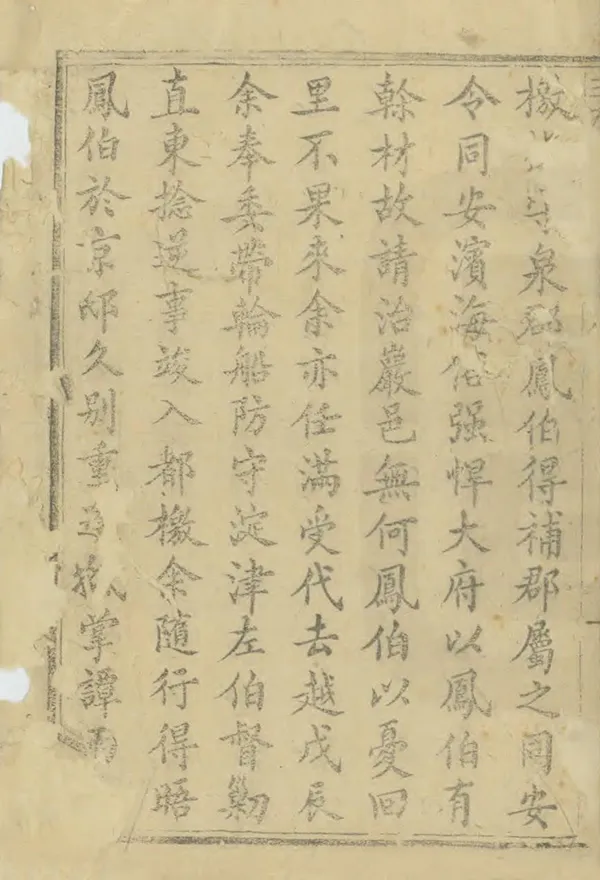 檄守泉郡鳳伯得補郡屬之同安
令同安濱海俗强悍大府以鳳伯有
榦材故請治巖邑無何鳳伯以憂回
里不果來余亦任滿受代去越戊辰
余奉委帶輪船防守淀津左伯督勦
直東捻逆事竣入都檄余隨行得晤
鳳伯於京邸久別重為抵掌譚